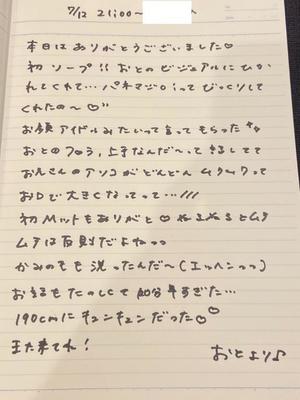 7/12 21:00〜
本日はありがとうございました♡
初ソープ!! おとのビジュアルにひか
れてくれて… パネマジ0!ってびっくりして
くれたの〜♡
お顔アイドルみたいって言ってもらった
おとのフロう, 上手なんだ〜って
お兄さんのアソコがどんどんムクムクって
お口で大きくなってって…///
初Mットもありがと♡ ヤるとムチ
ムチは反則だよねっっ
かみのもも洗ったんだ〜(エッヘンっっ)
お話もたのしくて 早すぎた…
190cmにキュンキュンだった♡♡
また来てね!
おとより♪